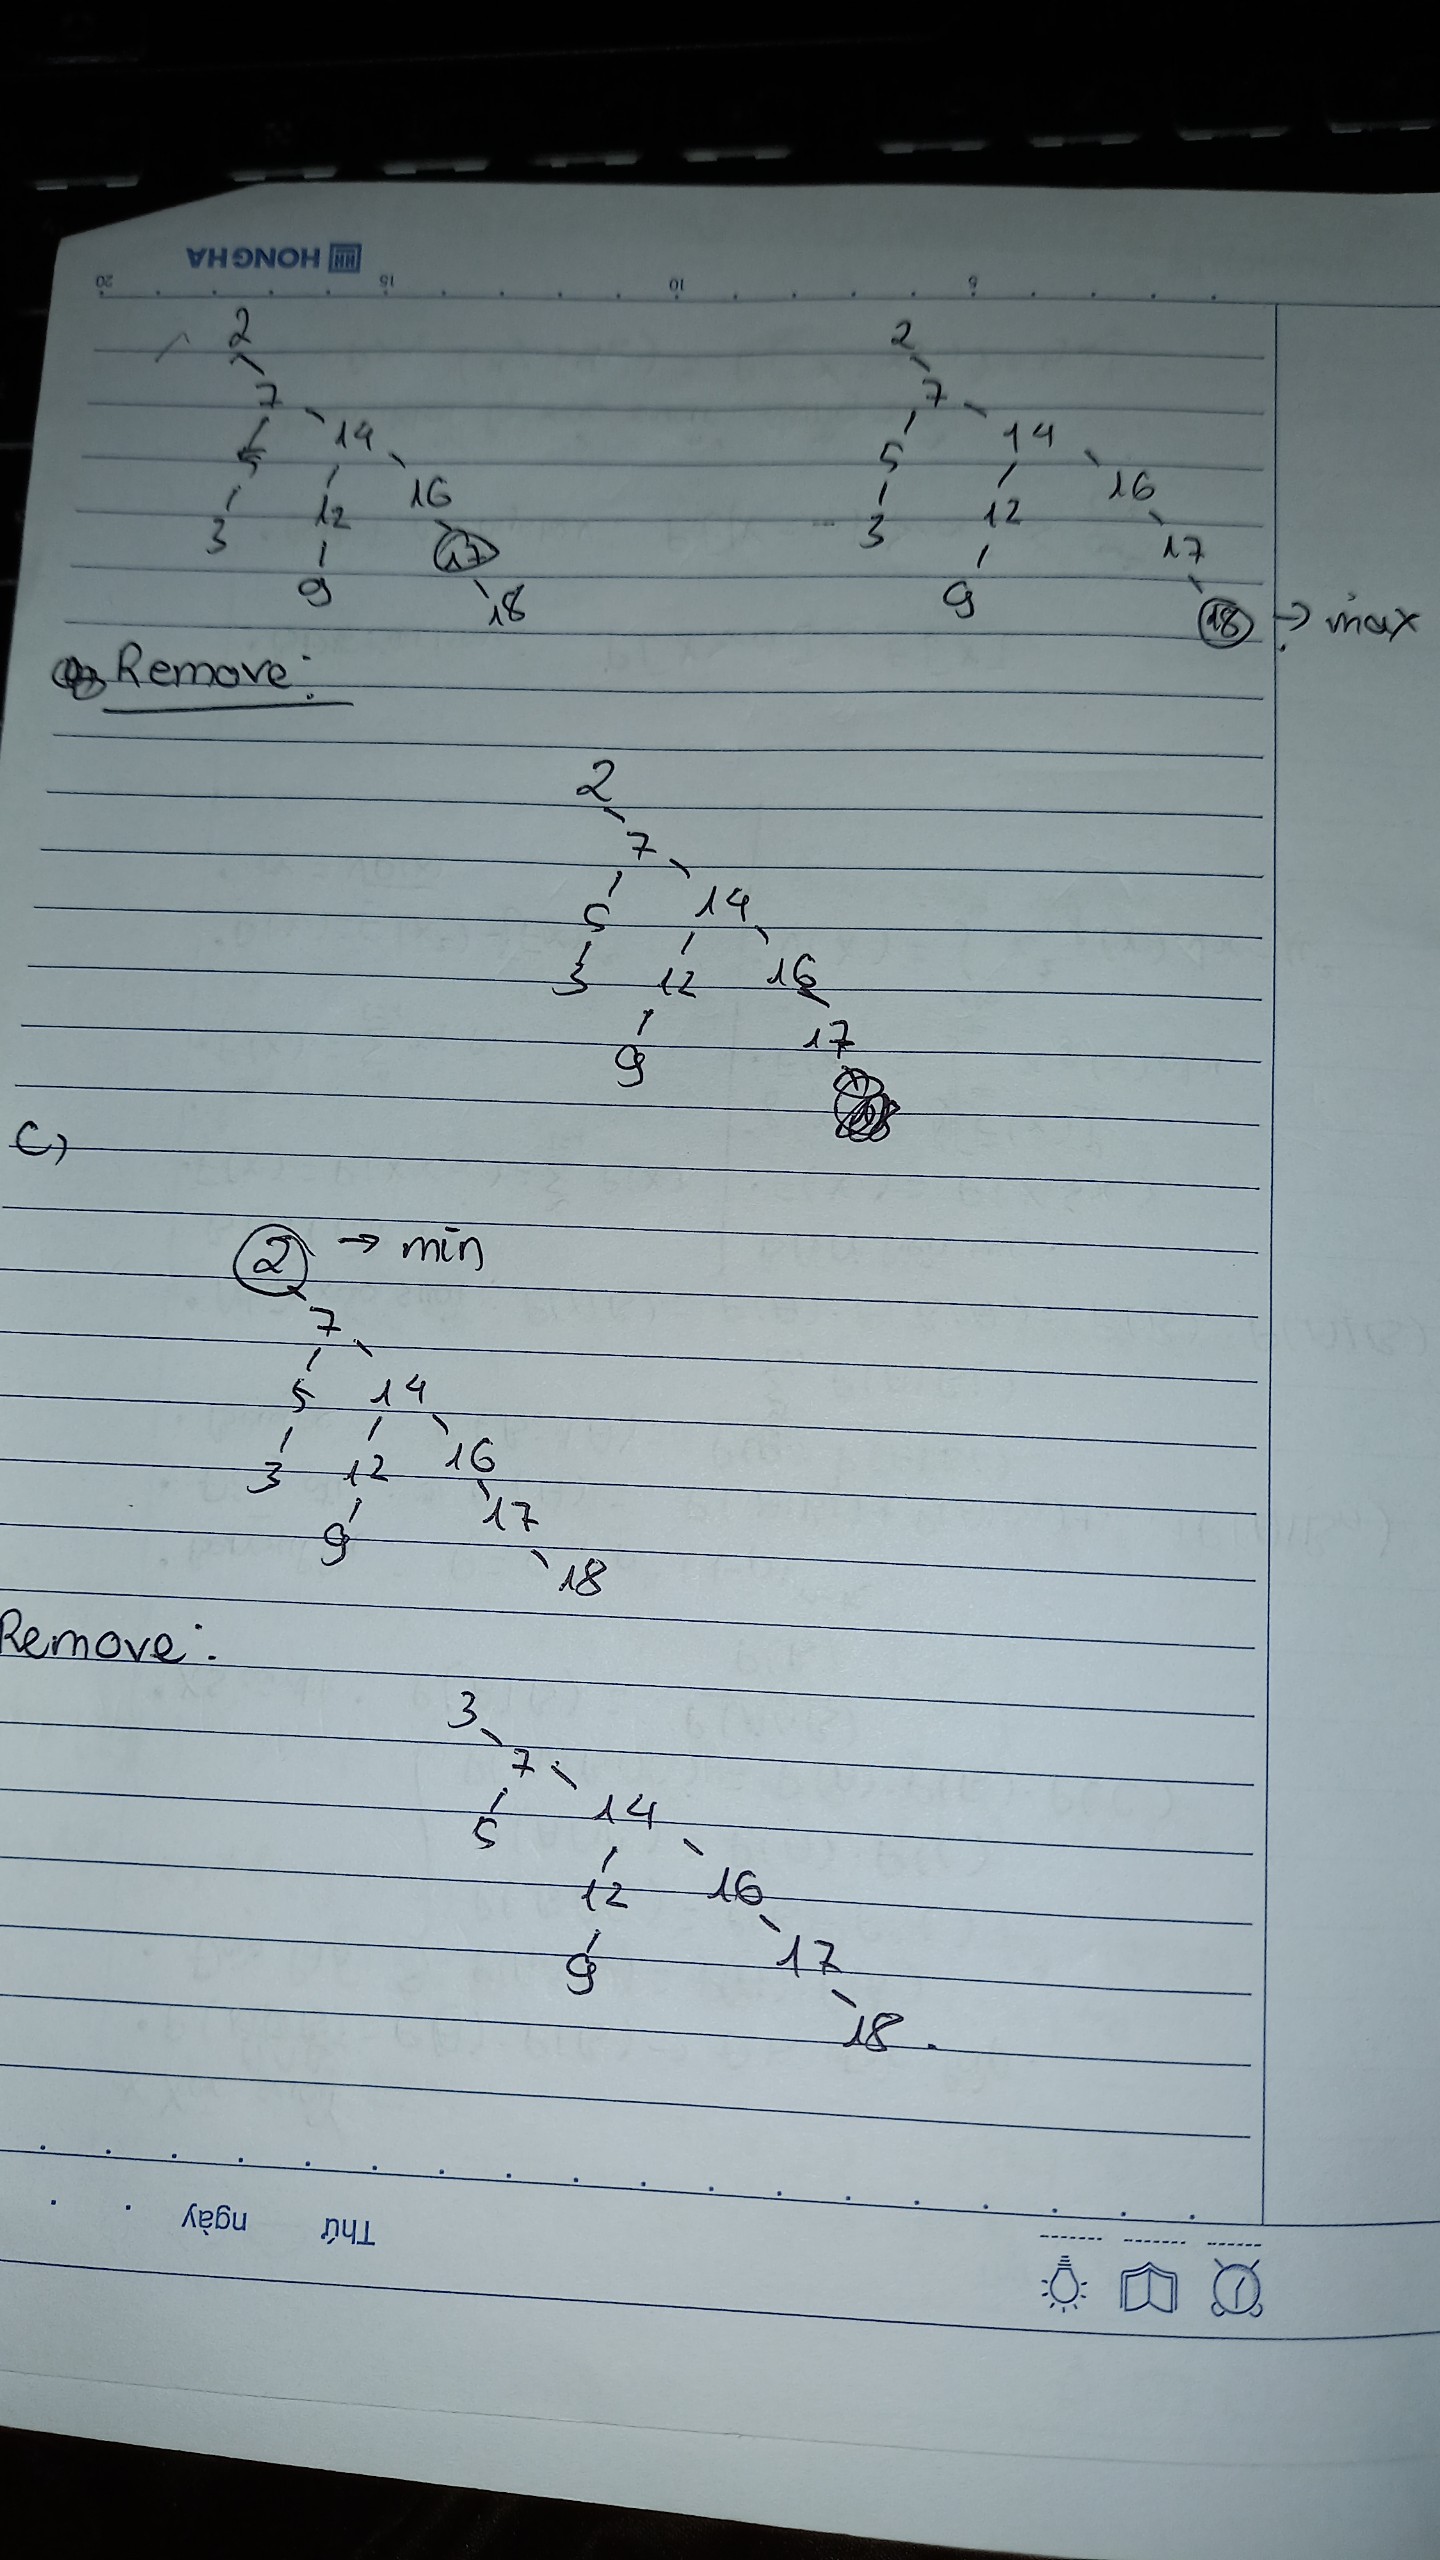 HONG HA
20 15 10 5
2 2
7 7
5 14 5 14
3 12 16 3 12 16
9 17 9 17
18 18 → max
Remove:
2
7
5 14
3 12 16
9 17
C)
2 → min
7
5 14
3 12 16
9 17
18
Remove:
3
7
5 14
12 16
9 17
18.
Thứ ngày